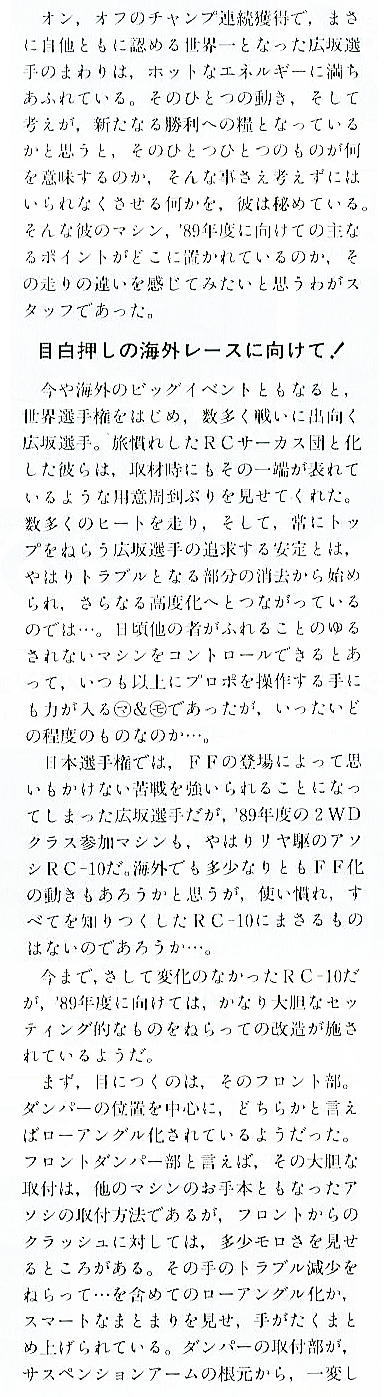 オン，オフのチャンプ連続獲得で，まさ
に自他ともに認める世界一となった広坂選
手のまわりは，ホットなエネルギーに満ち
あふれている。そのひとつの動き，そして
考えが，新たなる勝利への糧となっている
かと思うと，そのひとつひとつのものが何
を意味するのか，そんな事さえ考えずには
いられなくさせる何かを，彼は秘めている。
そんな彼のマシン，'89年度に向けての主な
るポイントがどこに置かれているのか，そ
の走りの違いを感じてみたいと思うわがス
タッフであった。
目白押しの海外レースに向けて！
今や海外のビッグイベントともなると，
世界選手権をはじめ，数多く戦いに出向く
広坂選手。旅慣れしたRCサーカス団と化
した彼らは，取材時にもその一端が表れて
いるような用意周到ぶりを見せてくれた。
数多くのヒートを走り，そして，常にトッ
プをねらう広坂選手の追求する安定とは，
やはりトラブルとなる部分の消去から始め
られ，さらなる高度化へとつながっている
のでは…。日頃他の者がふれることのゆる
されないマシンをコントロールできるとあ
って，いつも以上にプロポを操作する手に
も力が入る㋮&㋲であったが，いったいど
の程度のものなのか…。
日本選手権では，FFの登場によって思
いもかけない苦戦を強いられることになっ
てしまった広坂選手だが，'89年度の2WD
クラス参加マシンも，やはりリヤ駆のアソ
シRC-10だ。海外でも多少なりともFF化
の動きもあろうかと思うが，使い慣れ，す
べてを知りつくしたRC-10にまさるもの
はないのであろうか…。
今まで，さして変化のなかったRC-10だ
が，'89年度に向けては，かなり大胆なセッ
ティング的なものをねらっての改造が施さ
れているようだ。
まず，目につくのは，そのフロント部。
ダンパーの位置を中心に，どちらかと言え
ばローアングル化されているようだった。
フロントダンパー部と言えば，その大胆な
取付は，他のマシンのお手本ともなったア
ソシの取付方法であるが，フロントからの
クラッシュに対しては，多少モロさを見せ
るところがある。その手のトラブル減少を
ねらって…を含めてのローアングル化か，
スマートなまとまりを見せ，手がたくまと
め上げられている。ダンパーの取付部が，
サスペンションアームの根元から，一変し